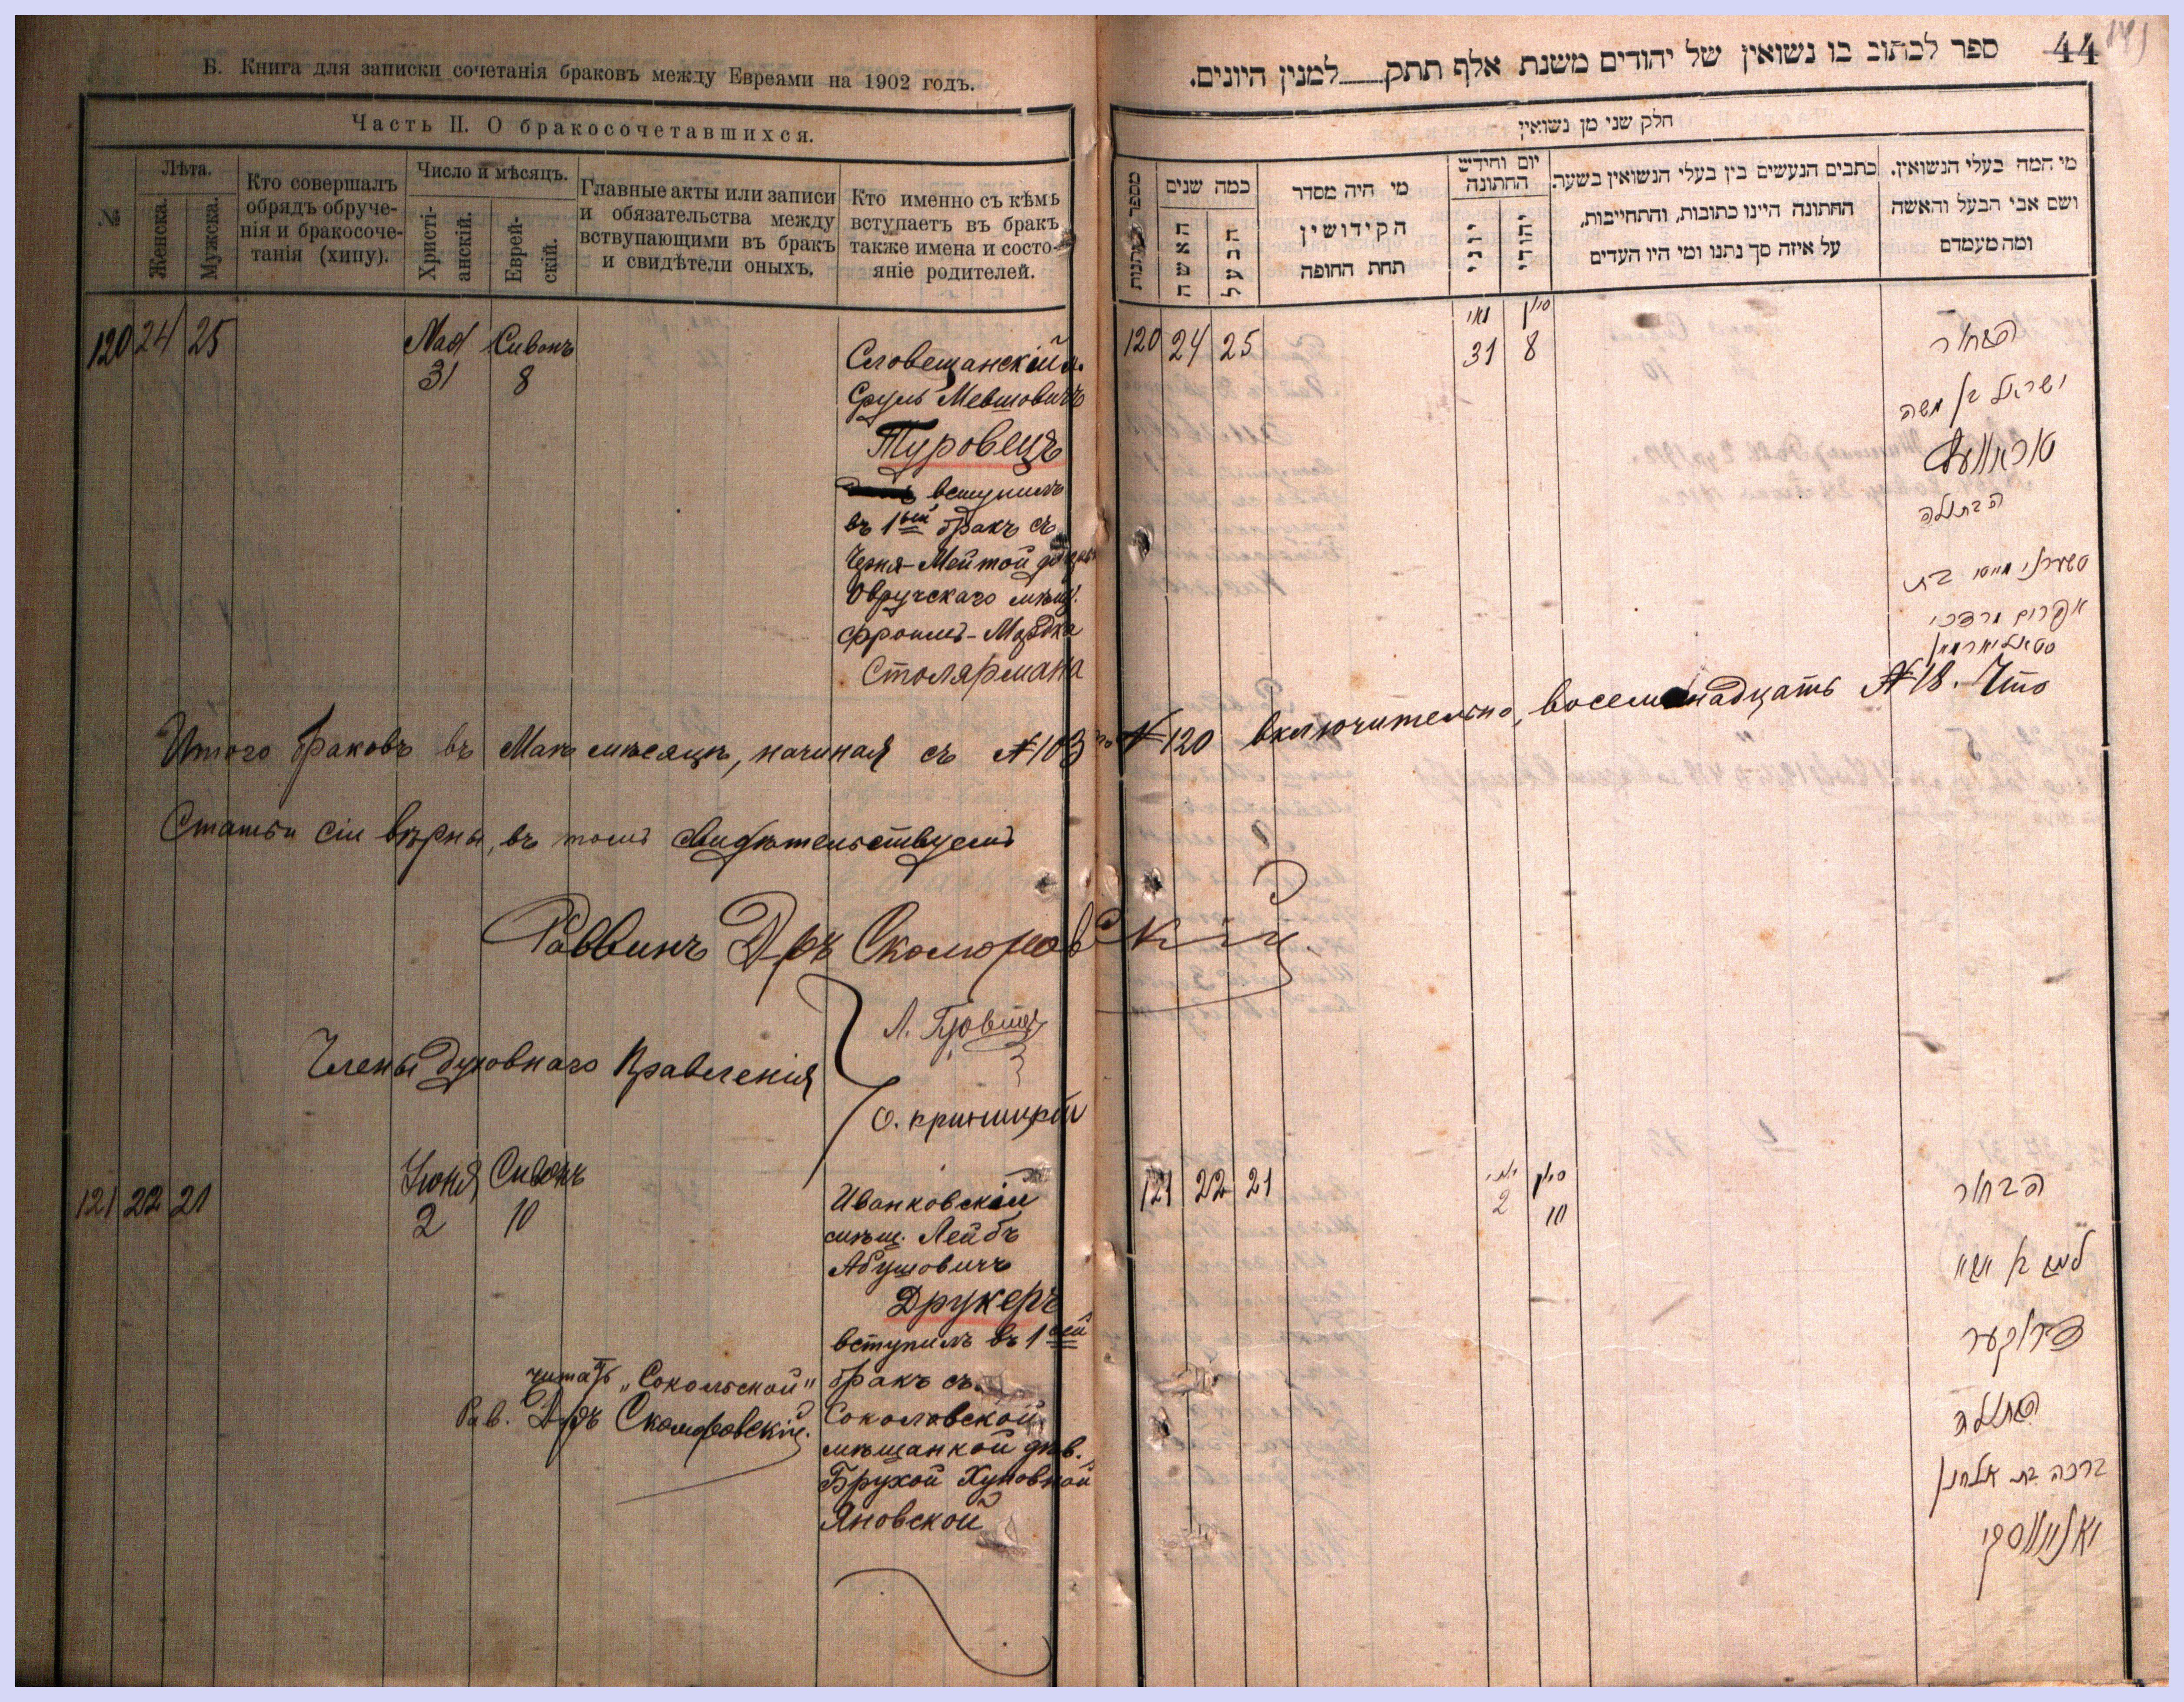 Б. Книга для записки сочетанія браковъ между Евреями на 1902 годъ.
Часть II. О бракосочетавшихся.
№
Лѣта.
Женска.
Мужска.
Кто совершалъ
обрядъ обруче-
нія и бракосоче-
танія (хипу).
Число и мѣсяцъ.
Христі-
анскій.
Еврей-
скій.
Главные акты или записи
и обязательства между
вствупающими въ бракъ
и свидѣтели оныхъ.
Кто именно съ кѣмъ
вступаетъ въ бракъ
также имена и состо-
яніе родителей.
120 24 25
Мая Сивонъ
31 8
Словещанскій м.
Сруль Мевшовичъ
Туровецъ
вступилъ
въ 1ый бракъ съ
Черня-Мейтой дочерью
Овручскаго мѣщ.
Фроимъ-Мордка
Столярмана
Итого браковъ въ Маѣ мѣсяцѣ, начиная съ №103 по №120 включительно, восемнадцать №18. Что
Статьи сіи вѣрны, въ томъ свидѣтельствуемъ
Раввинъ Д-ръ Скоморовскій.
Члены Духовнаго Правленія
Л.
О.
121 22 21
Іюня Сивонъ
2 10
Иванковскій
мѣщ. Лейбъ
Абушовичъ
Друкеръ
вступилъ въ 1ый
бракъ съ
Соколовской
мѣщанкой дѣв.
Брухой Хуновной
Яновской
читать „Сокольской"
Рав. Д-ръ Скоморовскій.
44
ספר לכתוב בו נשואין של יהודים משנת אלף תתק למנין היונים.
חלק שני מן נשואין
מספר חתונות
כמה שנים
האשה
הבעל
מי היה מסדר
הקידושין
תחת החופה
יום וחידש
החתונה
יוני
יהודי
כתבים הנעשים בין בעלי הנשואין בשעת
החתונה היינו כתובות, והתחייבות,
על איזה סך נתנו ומי היו העדים
מי המה בעלי הנשואין.
ושם אבי הבעל והאשה
ומה מעמדם
120 24 25
מאי סיון
31 8
הבחור
ישראל בן משה
טוראוועץ
הבתולה
טשערני מייטא בת
אפרים מרדכי
סטאליארמאן
121 22 21
יוני סיון
2 10
הבחור
דרוקער
הבתולה
ברכה בת אלחנן
יאנאווסקי